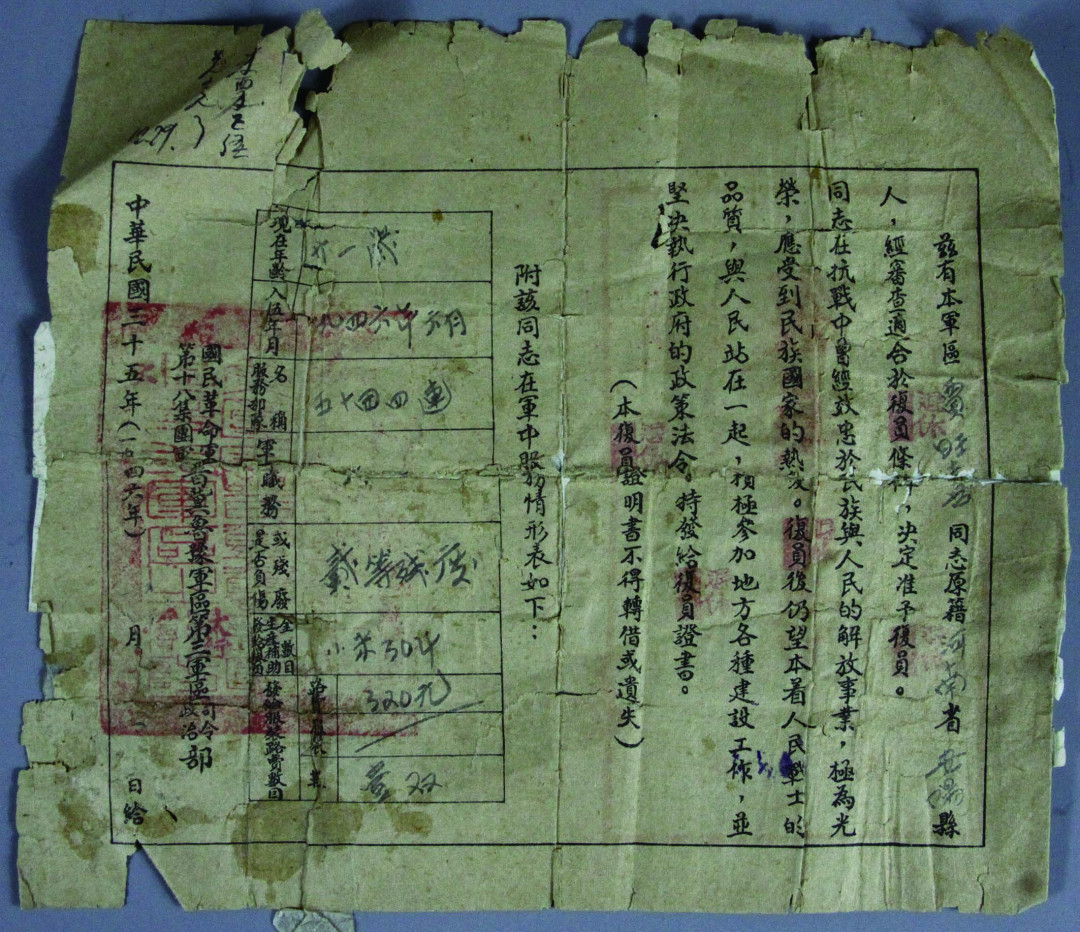 茲有本軍區 同志原籍河南省安陽縣
人，經審查適合於復員條件，决定准予復員。
同志在抗戰中曾經效忠於民族與人民的解放事業，極為光
榮，應受到民族國家的熱愛。復員後仍望本着人民戰士的
品質，與人民站在一起，積極參加地方各種建設工作，並
堅决執行政府的政策法令。特發給復員證書。
（本復員證明書不得轉借或遺失）
附該同志在軍中服務情形表如下：
現在年齡
入伍年月 一九四六年六月
服務部隊名稱 五十四四連
軍職務
是否負傷或殘廢 等殘廢
發給復員生產補助金數目 小米30斗
發給服裝路費數目
320元
壹双
國民革命軍第十八集團軍晉冀魯豫軍區第三軍區司令政治部
中華民國三十五年（一九四六年） 月 日給